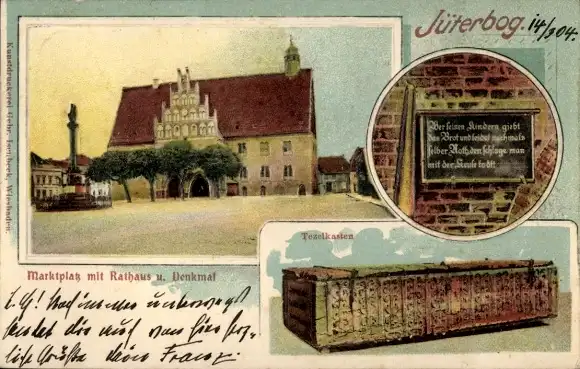 Jüterbog.
14/9 04.
Kunstdruckerei Gebr. Wiesbaden.
Wer seinen Kindern giebt
das Brot und leidet nachmals
selber Noth, den schlage man
mit der Keule todt!
Tezelkasten
Marktplatz mit Rathaus u. Denkmal
L. G! Noch immer unterwegs
sendet dir auf von hier
Grüße dein Franz.